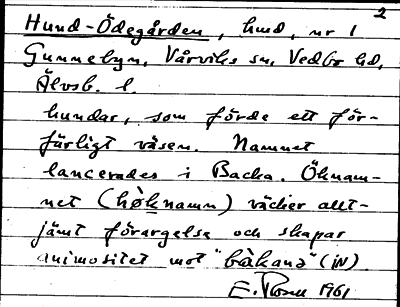 2
Hund-Ödegården, hmd, nr 1
Gunnebyn, Vårviks sn, Vedbo hd,
Älvsb. l.
hundar, som förde ett för-
färligt väsen. Namnet
lancerades i Backa. Öknam-
net (höknamn) väcker allt-
jämt förargelse och skapar
animositet mot "båkana" (iN)
E. 1961